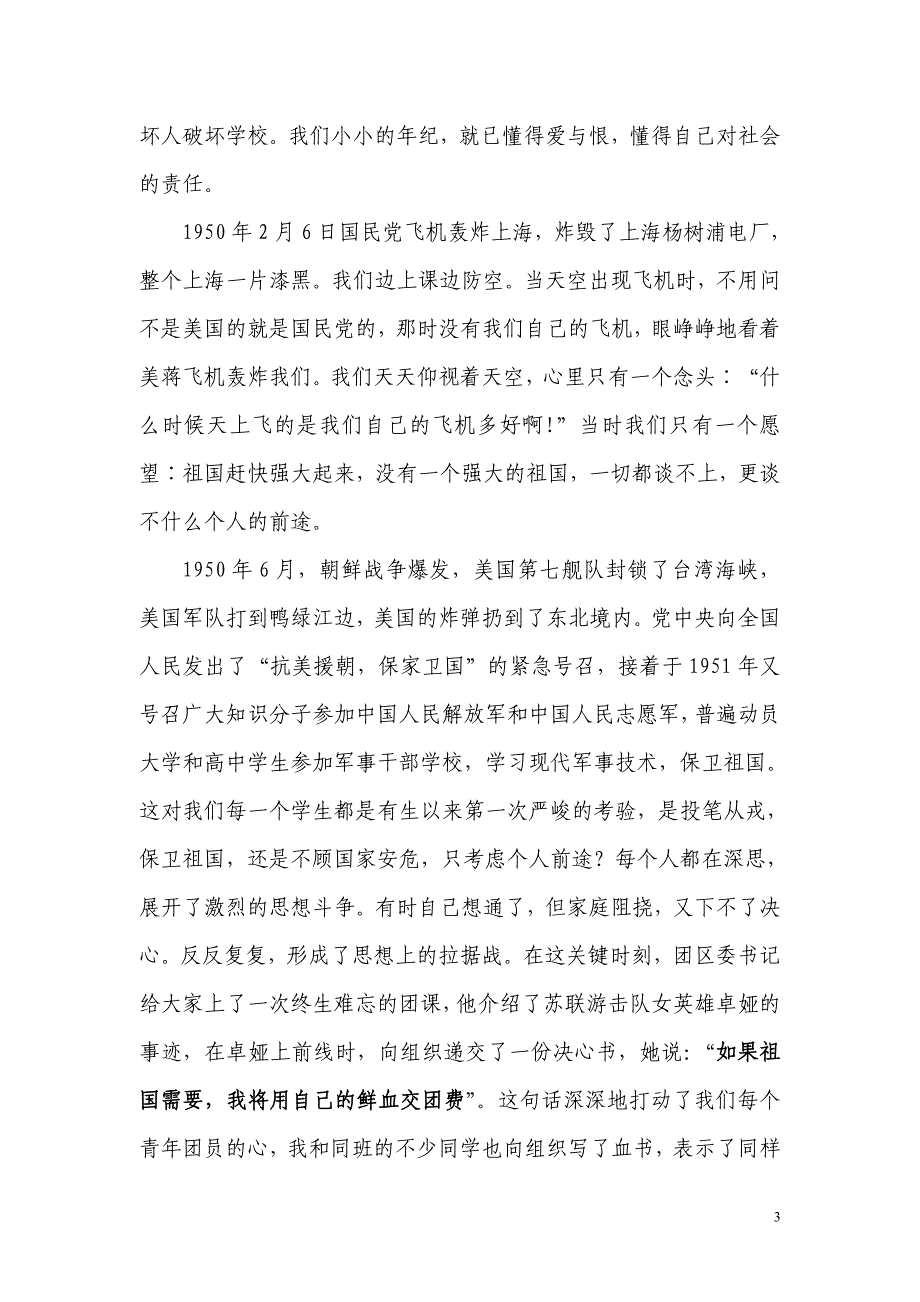 坏人破坏学校。我们小小的年纪，就已懂得爱与恨，懂得自己对社会
的责任。
1950 年 2 月 6 日国民党飞机轰炸上海，炸毁了上海杨树浦电厂，
整个上海一片漆黑。我们边上课边防空。当天空出现飞机时，不用问
不是美国的就是国民党的，那时没有我们自己的飞机，眼峥峥地看着
美蒋飞机轰炸我们。我们天天仰视着天空，心里只有一个念头：“什
么时候天上飞的是我们自己的飞机多好啊！”当时我们只有一个愿
望：祖国赶快强大起来，没有一个强大的祖国，一切都谈不上，更谈
不什么个人的前途。
1950 年 6 月，朝鲜战争爆发，美国第七舰队封锁了台湾海峡，
美国军队打到鸭绿江边，美国的炸弹扔到了东北境内。党中央向全国
人民发出了“抗美援朝，保家卫国”的紧急号召，接着于 1951 年又
号召广大知识分子参加中国人民解放军和中国人民志愿军，普遍动员
大学和高中学生参加军事干部学校，学习现代军事技术，保卫祖国。
这对我们每一个学生都是有生以来第一次严峻的考验，是投笔从戎，
保卫祖国，还是不顾国家安危，只考虑个人前途？每个人都在深思，
展开了激烈的思想斗争。有时自己想通了，但家庭阻挠，又下不了决
心。反反复复，形成了思想上的拉据战。在这关键时刻，团区委书记
给大家上了一次终生难忘的团课，他介绍了苏联游击队女英雄卓娅的
事迹，在卓娅上前线时，向组织递交了一份决心书，她说：“如果祖
国需要，我将用自己的鲜血交团费”。这句话深深地打动了我们每个
青年团员的心，我和同班的不少同学也向组织写了血书，表示了同样
3